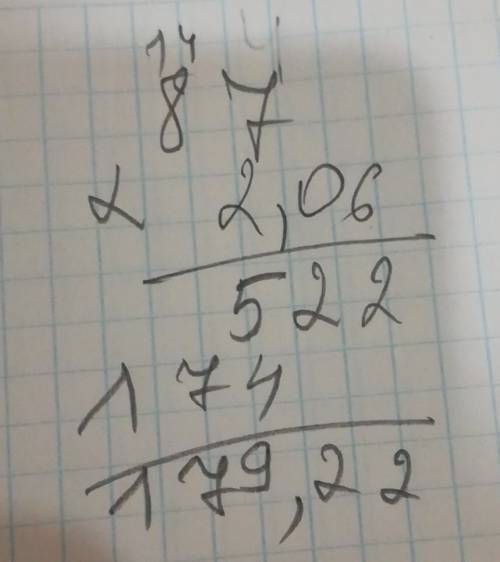 14
87
× 2,06
522
174
179,22